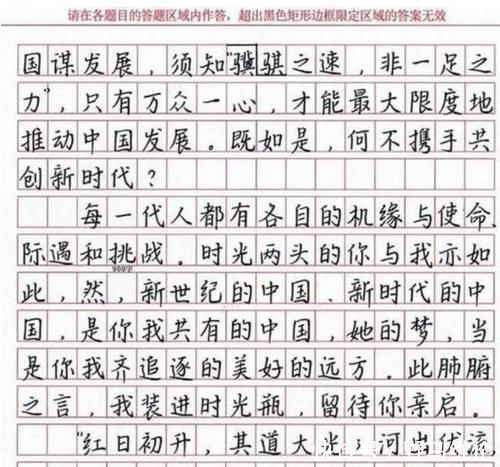 请在各题目的答题区域内作答，超出黑色矩形边框限定区域的答案无效
国谋发展，须知“骥骐之速，非一足之
力”，只有万众一心，才能最大限度地
推动中国发展。既如是，何不携手共
创新时代？
每一代人都有各自的机缘与使命、
际遇和挑战。时光两头的你与我亦如
900字
此，然，新世纪的中国、新时代的中
国，是你我共有的中国，她的梦，当
是你我齐追逐的美好的远方。此肺腑
之言，我装进时光瓶，留待你亲启。
“红日初升，其道大光；河出伏流